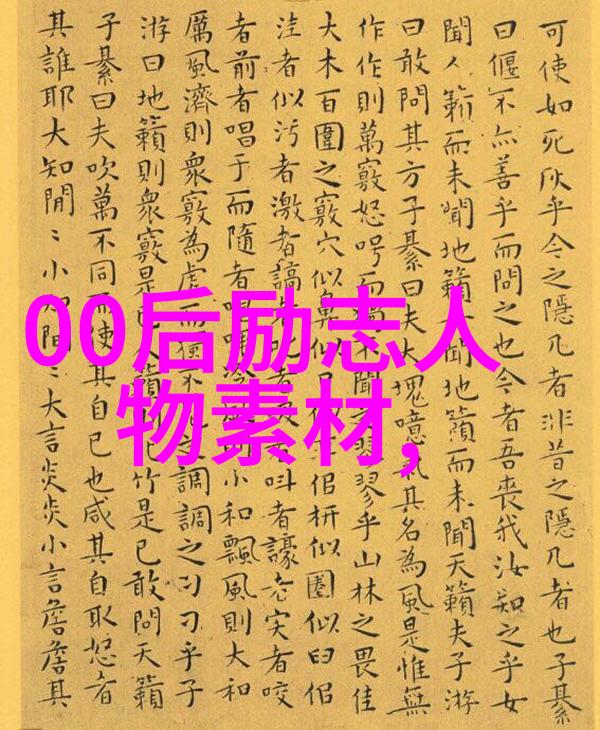 可使如死灰乎今之隱几者非昔之隱几者也子綦
曰偃不亦善乎而問之也今者吾喪我汝知之乎女
聞人籟而未聞地籟聞地籟而未聞天籟夫子游
曰敢問其方子綦曰夫大塊噫氣其名為風是惟無
作作則萬竅怒呺而獨不聞之翏翏乎山林之畏佳
大木百圍之竅穴似鼻似口似佀枅似圈似臼佀
洼者似污者激者謞者叱者者叫者譹者宎者咬
者前者唱于而隨者唱喁泠風小和飄風則大和
厲風濟則衆竅為虛而獨不之調調之刁刁乎子
游曰地籟則衆竅是已人籟則比竹是已敢問天籟
子綦曰夫吹萬不同而使其自已也咸其自取怒者
其誰耶大知閒〻小知閒〻大言炎炎小言詹詹其
00后励志人
物素材,